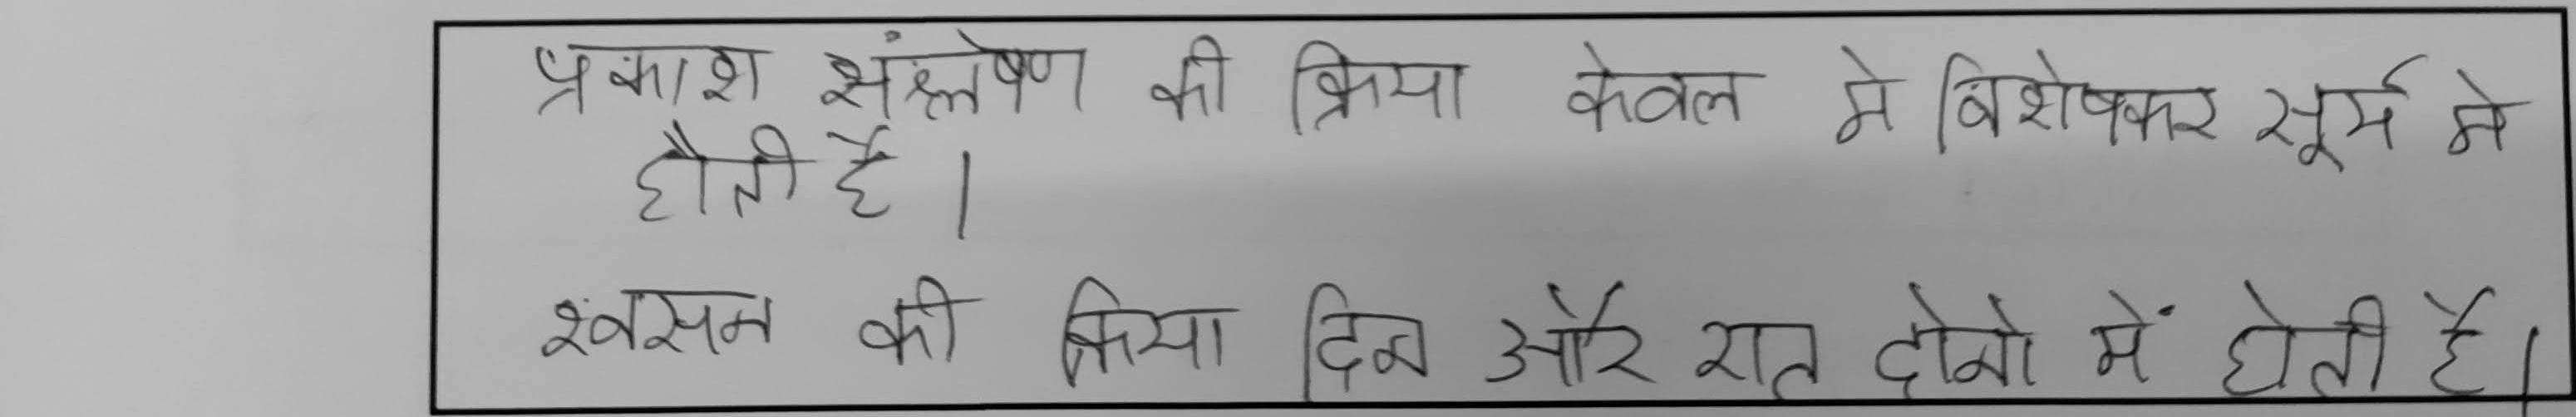 प्रकाश संश्लेषण की क्रिया केवल मे विशेषकर सूर्य मे
होती है।
श्वसन की क्रिया दिन और रात दोनो में होती है।